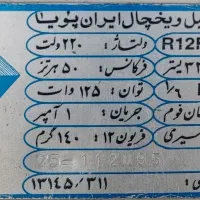 یخچال ایران پویا
R12F ولتاژ: ۲۲۰ ولت
لیتر فرکانس: ۵۰ هرتز
۱/۶ توان: ۱۲۵ وات
فوم جریان: ۱ آمپر
سیری فریون ۱۲: ۱۴۰ گرم
۱۳۱۴۵/۳۱۱